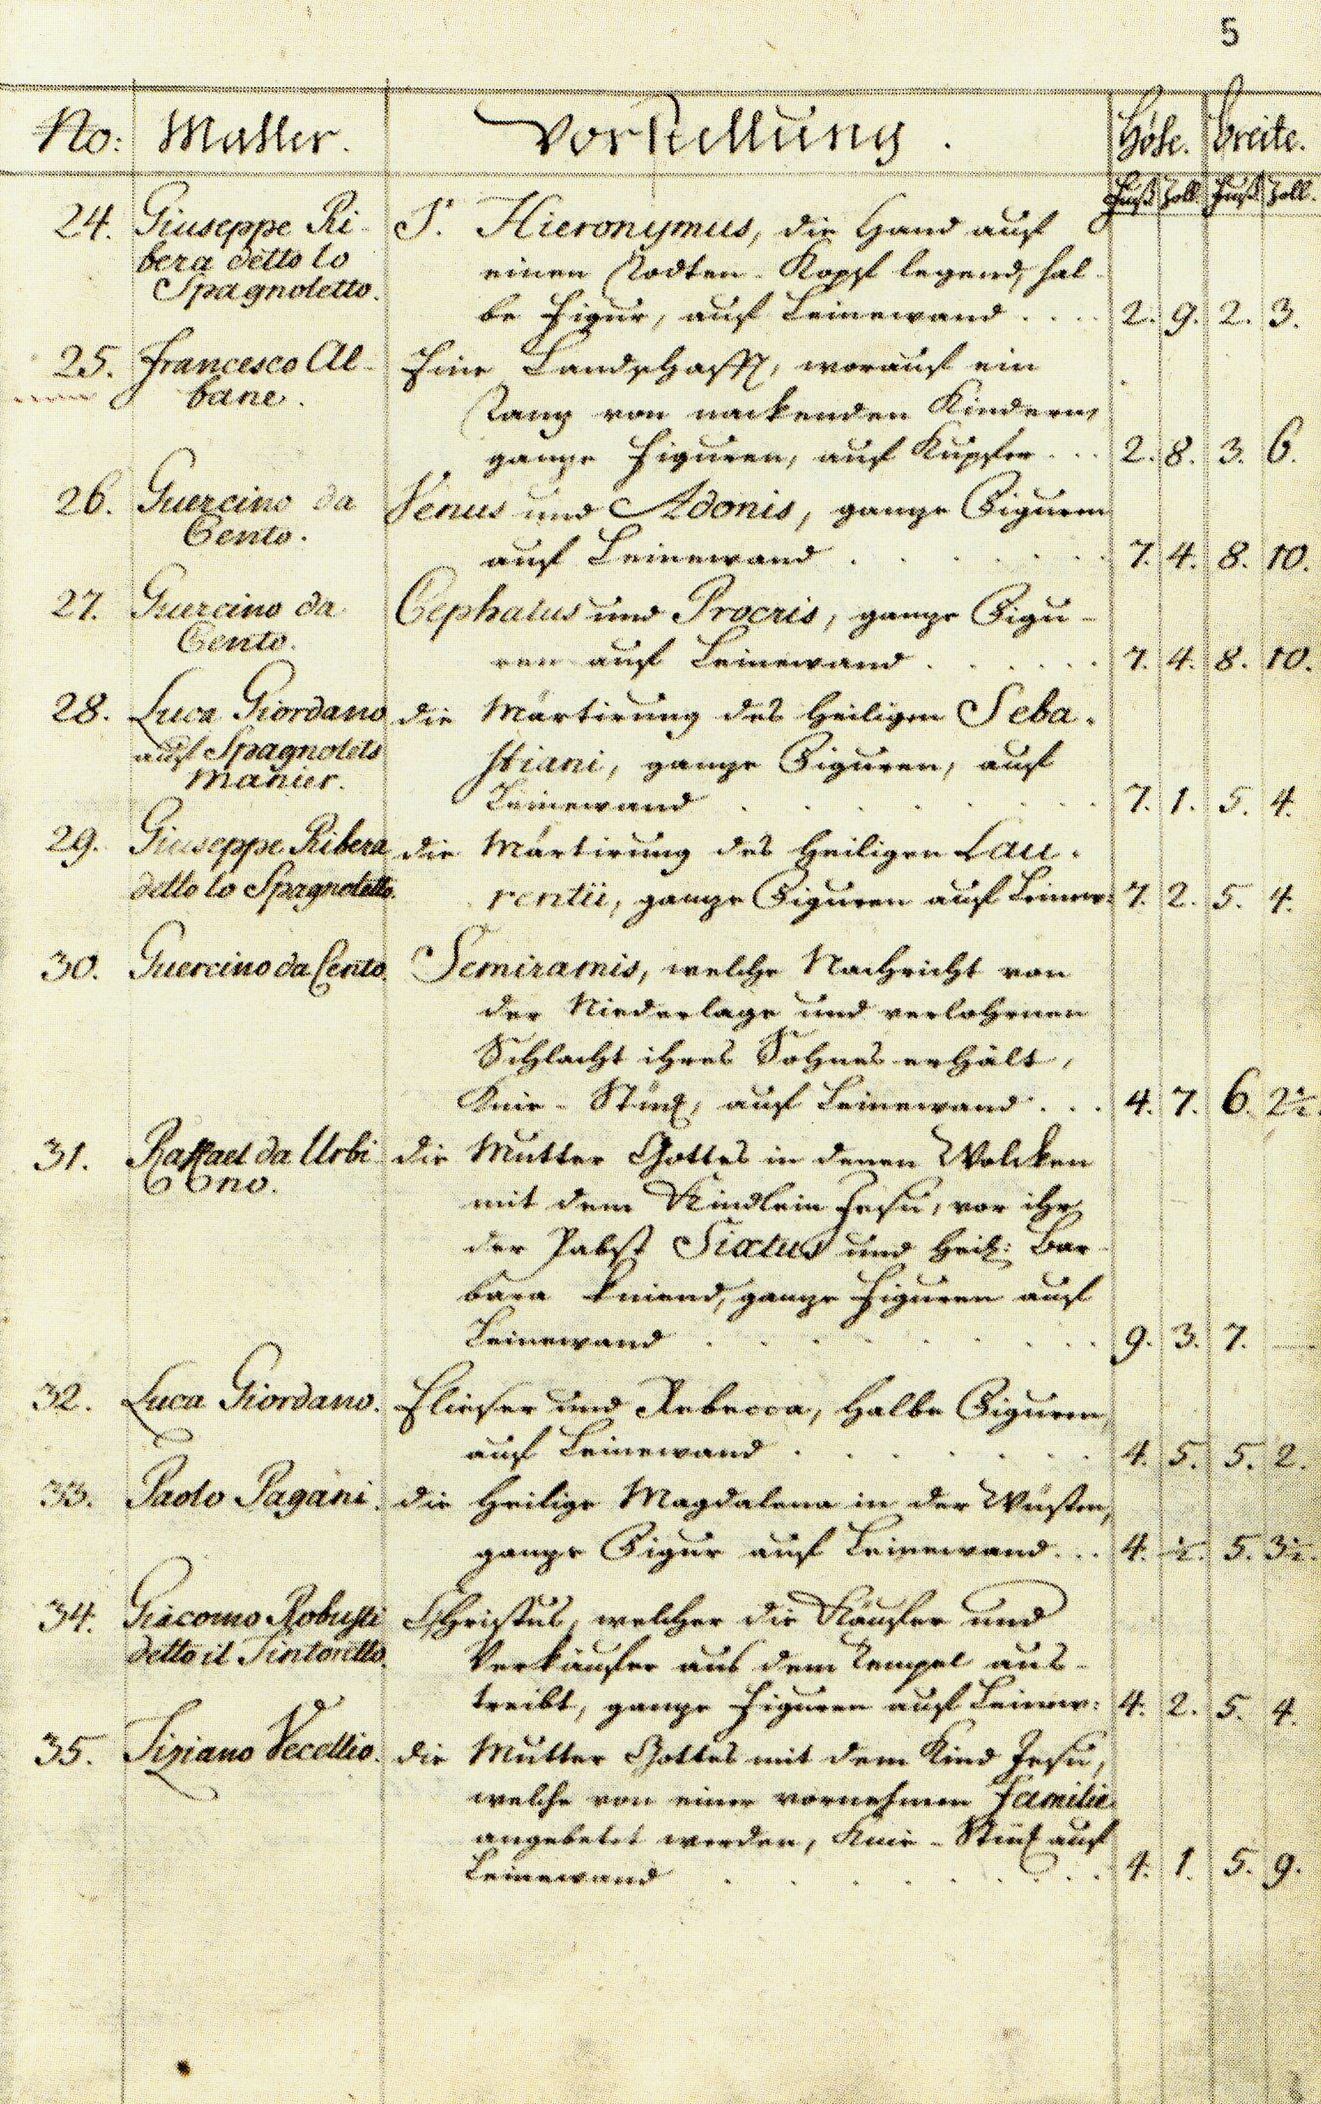 5
No: Mahler. Vorstellung. Höhe. breite.
Fuß Zoll Fuß Zoll.
24. Giuseppe Ri- S. Hieronymus, die Hand auf
bera detto lo einen Todten-Kopf legend, hal-
Spagnoletto. be Figur, auf Leinewand . . . . 2. 9. 2. 3.
25. Francesco Al- Eine Landschafft, worauf ein
bane. Tanz von nackenden Kindern,
gantze Figuren, auf Kupfer . . . 2. 8. 3. 6.
26. Guercino da Venus und Adonis, gantze Figuren
Cento. auf Leinewand . . . . . . . 7. 4. 8. 10.
27. Guercino da Cephalus und Procris, gantze Figu-
Cento. ren auf Leinewand . . . . . . 7. 4. 8. 10.
28. Luca Giordano die Märtirung des Heiligen Seba-
auf Spagnolets stiani, gantze Figuren, auf
manier. Leinewand . . . . . . . . . 7. 1. 5. 4.
29. Giuseppe Ribera die Märtirung des Heiligen Lau-
detto lo Spagnoletto. rentii, gantze Figuren auf Leinew: 7. 2. 5. 4.
30. Guercino da Cento. Semiramis, welche Nachricht von
der Niederlage und verlohrnen
Schlacht ihres Sohnes erhält,
Knie-Stück, auf Leinewand . . . 4. 7. 6. 2½.
31. Raffael da Urbi die Mutter Gottes in denen Wolcken
no. mit dem Kindlein Jesu, vor ihr
der Pabst Sixtus und Heil: Bar-
bara kniend, gantze Figuren auf
Leinewand . . . . . . . . . 9. 3. 7. —
32. Luca Giordano. Elieser und Rebecca, Halbe Figuren,
auf Leinewand . . . . . . . 4. 5. 5. 2.
33. Paolo Pagani. die Heilige Magdalena in der Wüsten,
gantze Figur auf Leinewand . . . 4. ½. 5. 3½.
34. Giacomo Robusti Christus, welcher die Käufer und
detto il Tintoretto. Verkäufer aus dem Tempel aus-
treibt, gantze Figuren auf Leinew: 4. 2. 5. 4.
35. Tiziano Vecellio. die Mutter Gottes mit dem Kind Jesu,
welche von einer vornehmen Familie
angebetet werden, Knie-Stück auf
Leinewand . . . . . . . . . 4. 1. 5. 9.